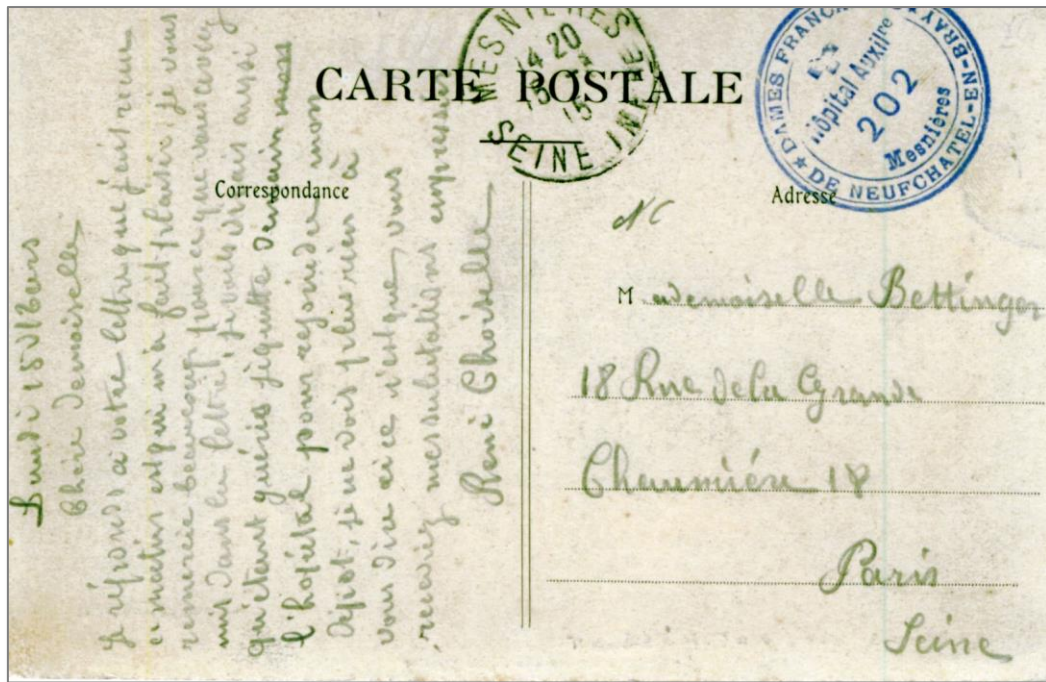 CARTE POSTALE
MESNIERES
14 20
15
SEINE INFRE
DAMES FRANÇAISES
DE NEUFCHATEL-EN-BRAY
Hôpital Auxilre
202
Mesnières
Correspondance
Adresse
Lundi 15
Chère Demoiselle
Je réponds a votre lettre que j'ait recue
ce matin est qui m'a fait plaisir, je vous
remercie beaucoup pour ce que vous avez
mis dans la lettre, je vous dirais aussi
qu'étant guéris je quitte demain
l'hopital pour rejoindre mon
Dépot, je ne vois plus rien à
vous dire ci ce n'est que vous
receviez mes salutations
René Choiselle
Mademoiselle Bettinger
18 Rue de la Grande
Chaumiére 18
Paris
Seine